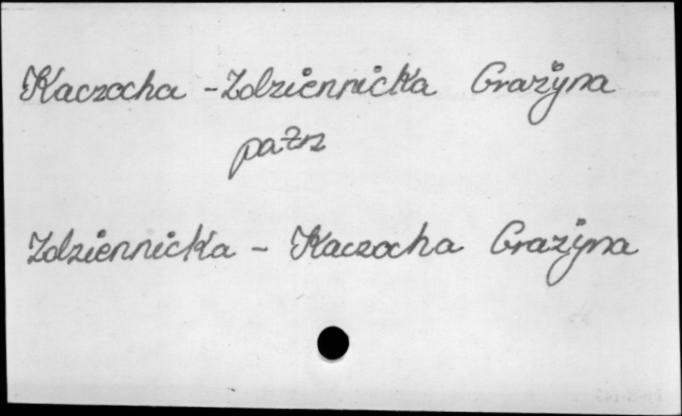 Kaczocha - Zdziennicka Grażyna
patrz
Zdziennicka - Kaczocha Grażyna